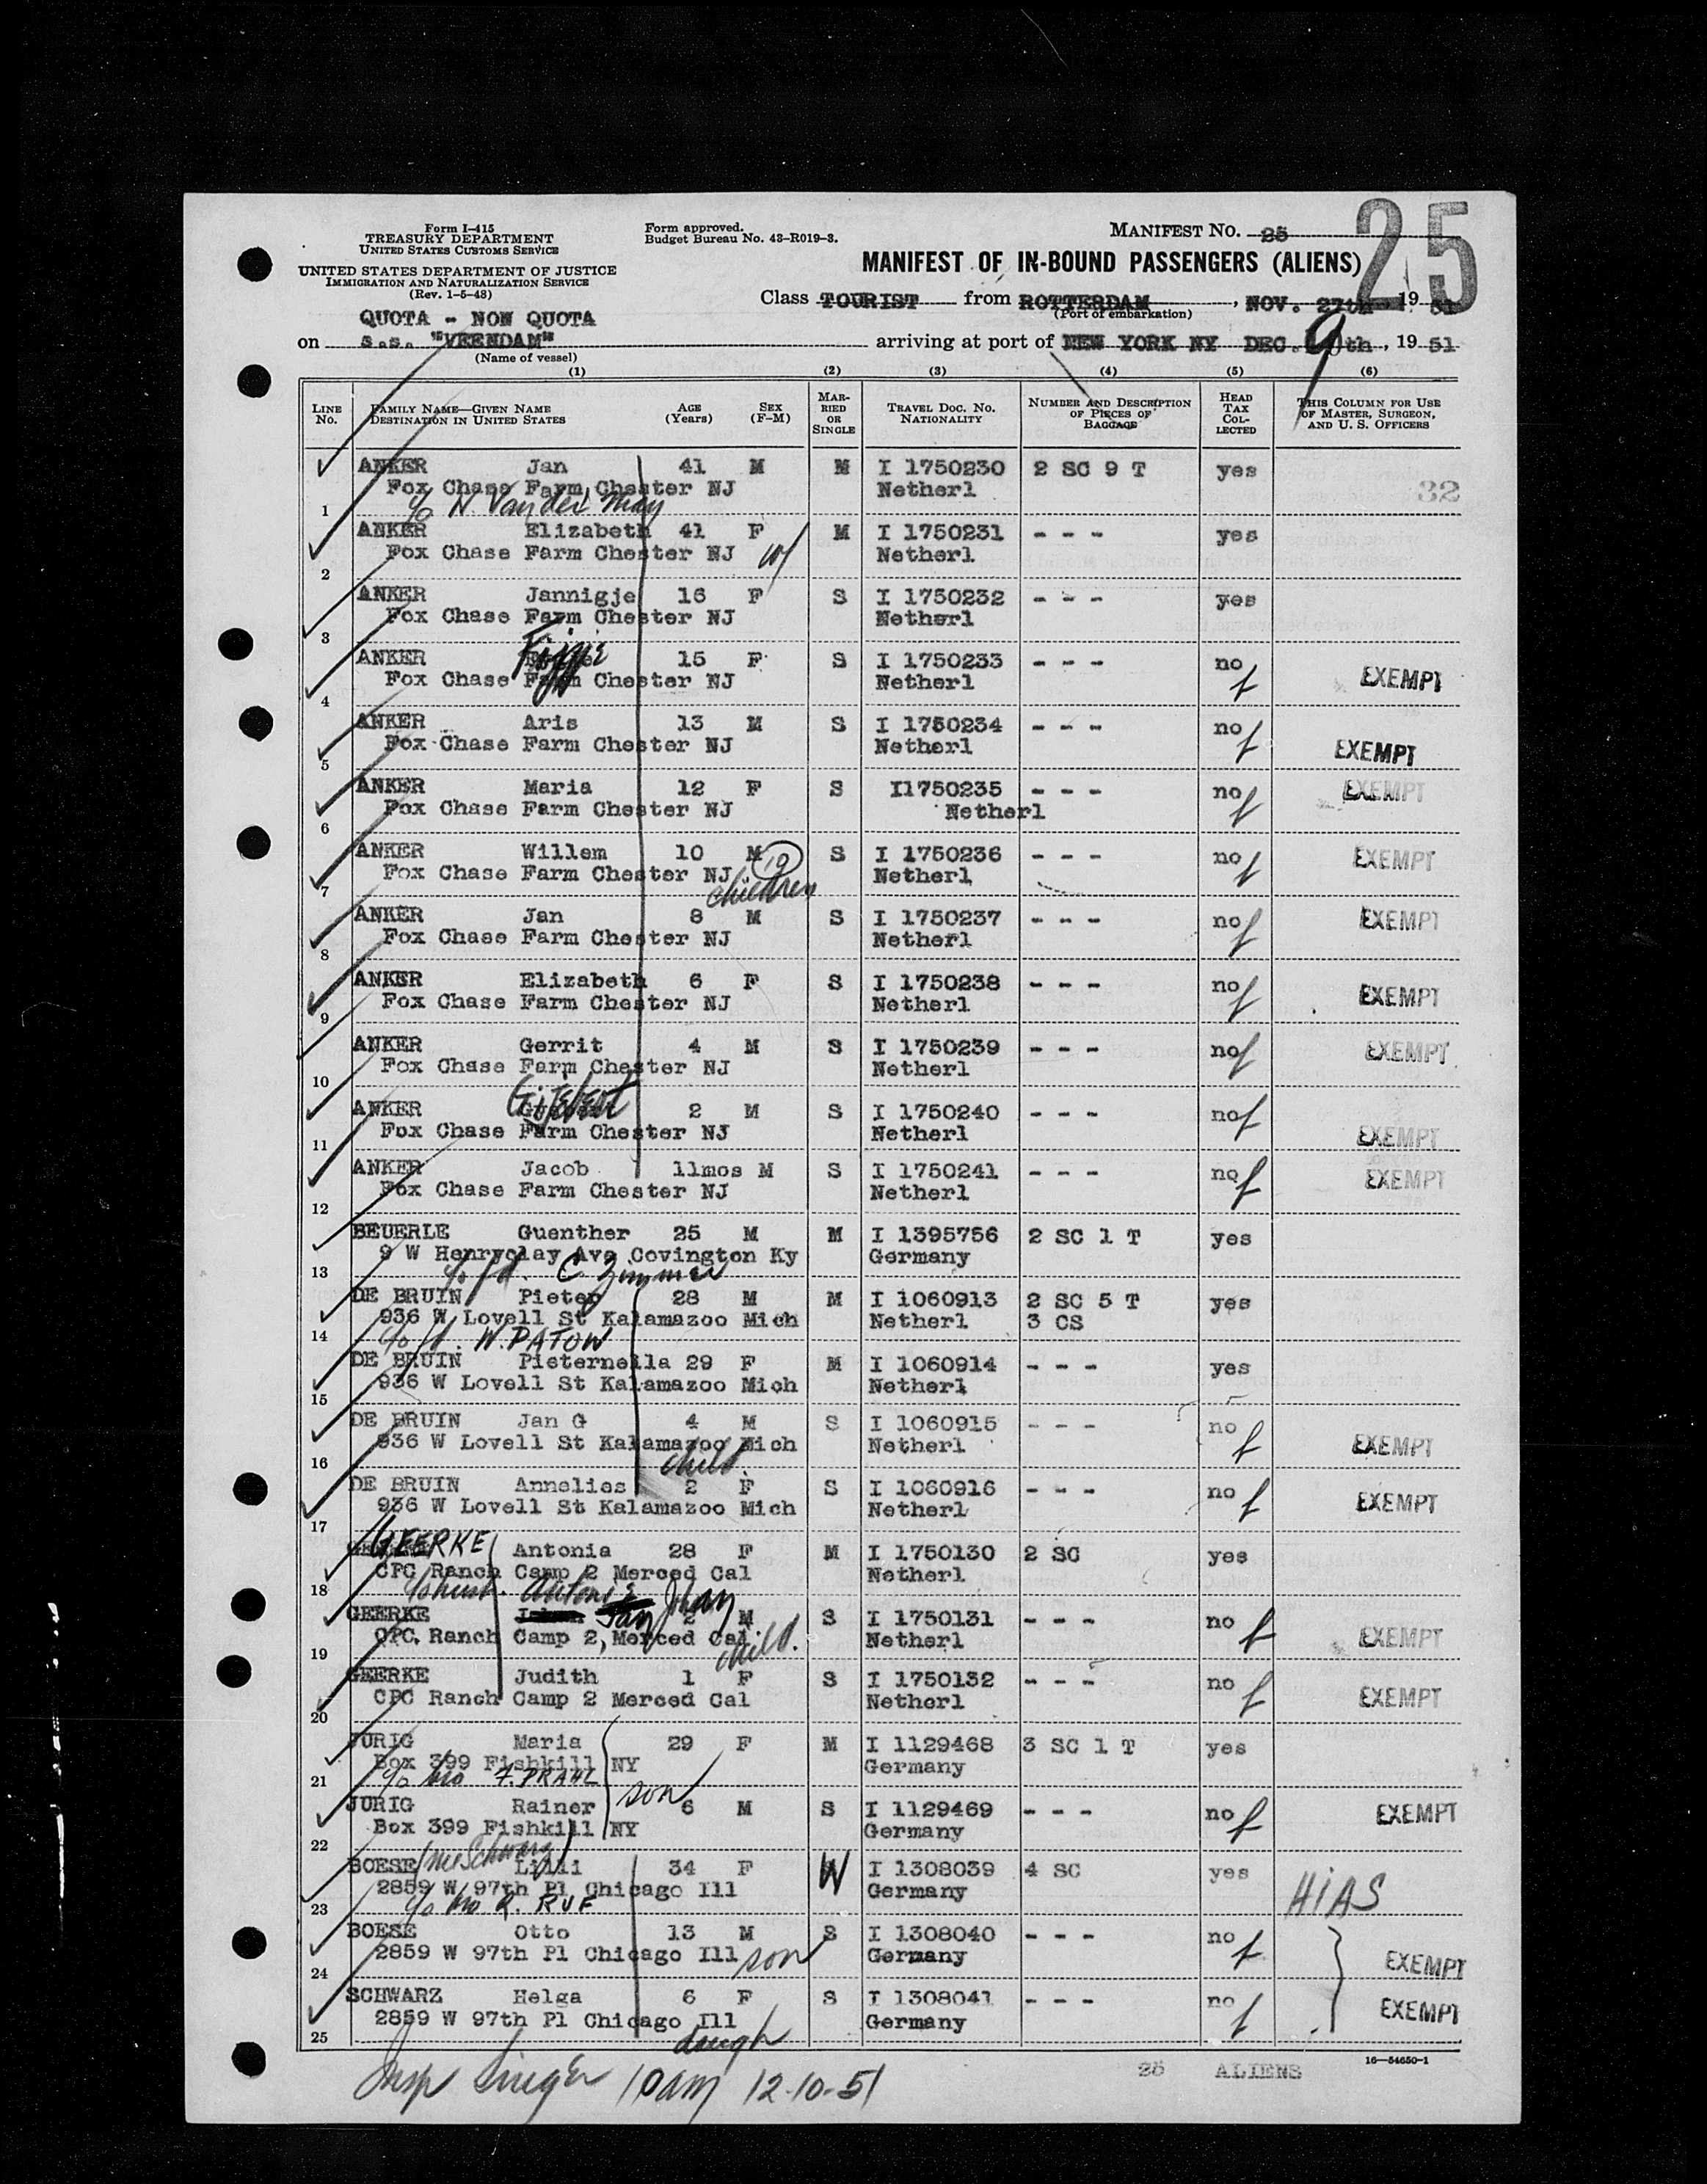 Form I-415
TREASURY DEPARTMENT
UNITED STATES CUSTOMS SERVICE
UNITED STATES DEPARTMENT OF JUSTICE
IMMIGRATION AND NATURALIZATION SERVICE
(Rev. 1-5-48)
Form approved.
Budget Bureau No. 43-R019-3.
MANIFEST No. 25
25
MANIFEST OF IN-BOUND PASSENGERS (ALIENS)
Class TOURIST from ROTTERDAM, NOV. 27th 19 51
(Port of embarkation)
QUOTA - NON QUOTA
on s.s. "VEENDAM" arriving at port of NEW YORK NY DEC. 9 th, 19 51
(Name of vessel)
(1) (2) (3) (4) (5) (6)
LINE NO. FAMILY NAME—GIVEN NAME DESTINATION IN UNITED STATES AGE (Years) SEX (F-M) MARRIED OR SINGLE TRAVEL DOC. NO. NATIONALITY NUMBER AND DESCRIPTION OF PIECES OF BAGGAGE HEAD TAX COLLECTED THIS COLUMN FOR USE OF MASTER, SURGEON, AND U. S. OFFICERS
ANKER Jan 41 M M I 1750230 2 SC 9 T yes
Fox Chase Farm Chester NJ Netherl 32
1 c/o N Van der May
ANKER Elizabeth 41 F M I 1750231 - - - yes
Fox Chase Farm Chester NJ W/ Netherl
2
ANKER Jannigje 16 F S I 1750232 - - - yes
Fox Chase Farm Chester NJ Netherl
3
ANKER Fijgje 15 F S I 1750233 - - - no
Fox Chase Farm Chester NJ Netherl EXEMPT
4
ANKER Aris 13 M S I 1750234 - - - no
Fox Chase Farm Chester NJ Netherl EXEMPT
5
ANKER Maria 12 F S I1750235 - - - no EXEMPT
Fox Chase Farm Chester NJ Netherl
6
ANKER Willem 10 M 10 S I 1750236 - - - no EXEMPT
Fox Chase Farm Chester NJ children Netherl
7
ANKER Jan 8 M S I 1750237 - - - no EXEMPT
Fox Chase Farm Chester NJ Netherl
8
ANKER Elizabeth 6 F S I 1750238 - - - no EXEMPT
Fox Chase Farm Chester NJ Netherl
9
ANKER Gerrit 4 M S I 1750239 - - - no EXEMPT
Fox Chase Farm Chester NJ Netherl
10
ANKER Gijsbert 2 M S I 1750240 - - - no
Fox Chase Farm Chester NJ Netherl EXEMPT
11
ANKER Jacob 11mos M S I 1750241 - - - no EXEMPT
Fox Chase Farm Chester NJ Netherl
12
BEUERLE Guenther 25 M M I 1395756 2 SC 1 T yes
9 W Henryclay Ave Covington Ky Germany
13 c/o fd. C. Zimmer
DE BRUIN Pieter 28 M M I 1060913 2 SC 5 T yes
936 W Lovell St Kalamazoo Mich Netherl 3 CS
14 c/o fd. W. PATOW
DE BRUIN Pieternella 29 F M I 1060914 - - - yes
936 W Lovell St Kalamazoo Mich Netherl
15
DE BRUIN Jan G 4 M S I 1060915 - - - no
936 W Lovell St Kalamazoo Mich Netherl EXEMPT
16 child
DE BRUIN Annelies 2 F S I 1060916 - - - no
936 W Lovell St Kalamazoo Mich Netherl EXEMPT
17
GEERKE Antonia 28 F M I 1750130 2 SC yes
CPC Ranch Camp 2 Merced Cal Netherl
18 c/o hush. Antonie
GEERKE Jan Johan 2 M S I 1750131 - - - no
CPC Ranch Camp 2, Merced Cal Netherl EXEMPT
19 child.
GEERKE Judith 1 F S I 1750132 - - - no
CPC Ranch Camp 2 Merced Cal Netherl EXEMPT
20
JURIG Maria 29 F M I 1129468 3 SC 1 T yes
Box 399 Fishkill NY Germany
21 c/o bro F. PRAHL
JURIG Rainer son 6 M S I 1129469 - - - no EXEMPT
Box 399 Fishkill NY Germany
22
BOESE / nee Schwarz Lilli 34 F W I 1308039 4 SC yes
2859 W 97th Pl Chicago Ill Germany HIAS
23 c/o bro R. RUF
BOESE Otto 13 M S I 1308040 - - - no
2859 W 97th Pl Chicago Ill son Germany EXEMPT
24
SCHWARZ Helga 6 F S I 1308041 - - - no
2859 W 97th Pl Chicago Ill Germany EXEMPT
25 daugh
Insp Singer 10am 12-10-51
25 ALIENS
16—54650-1